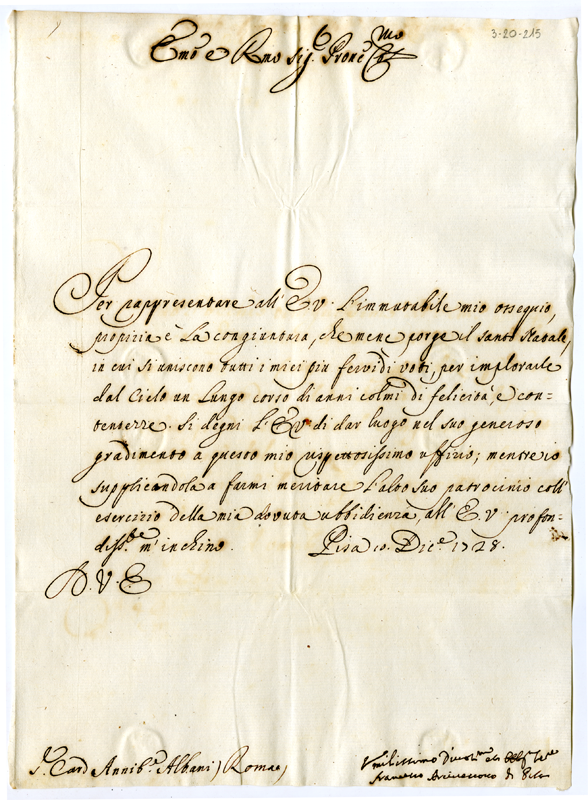 3-20-215
Emo e Rmo Sig.r Prone Colmo
Per rappresentare all' E V. l'immutabile mio ossequio,
propizia è la congiuntura, che mene porge il santo Natale,
in cui si uniscono tutti i miei più fervidi voti, per implorarle
dal Cielo un lungo corso di anni colmi di felicità, e con=
tentezze. Si degni l'E V. di dar luogo nel suo generoso
gradimento a questo mio rispettosissimo uffizio; mentre io
supplicandola a farmi meritare l'alto suo patrocinio coll'
esercizio della mia dovuta ubbidienza, all' E. V. profon=
diss.e m' inchino. Pisa Dic.e 1728.
D. V. E
S.r Card Annib.e Albani) Roma)
Umilissimo Divot.mo et Obblig.mo
Francesco Arcivescovo di Pisa